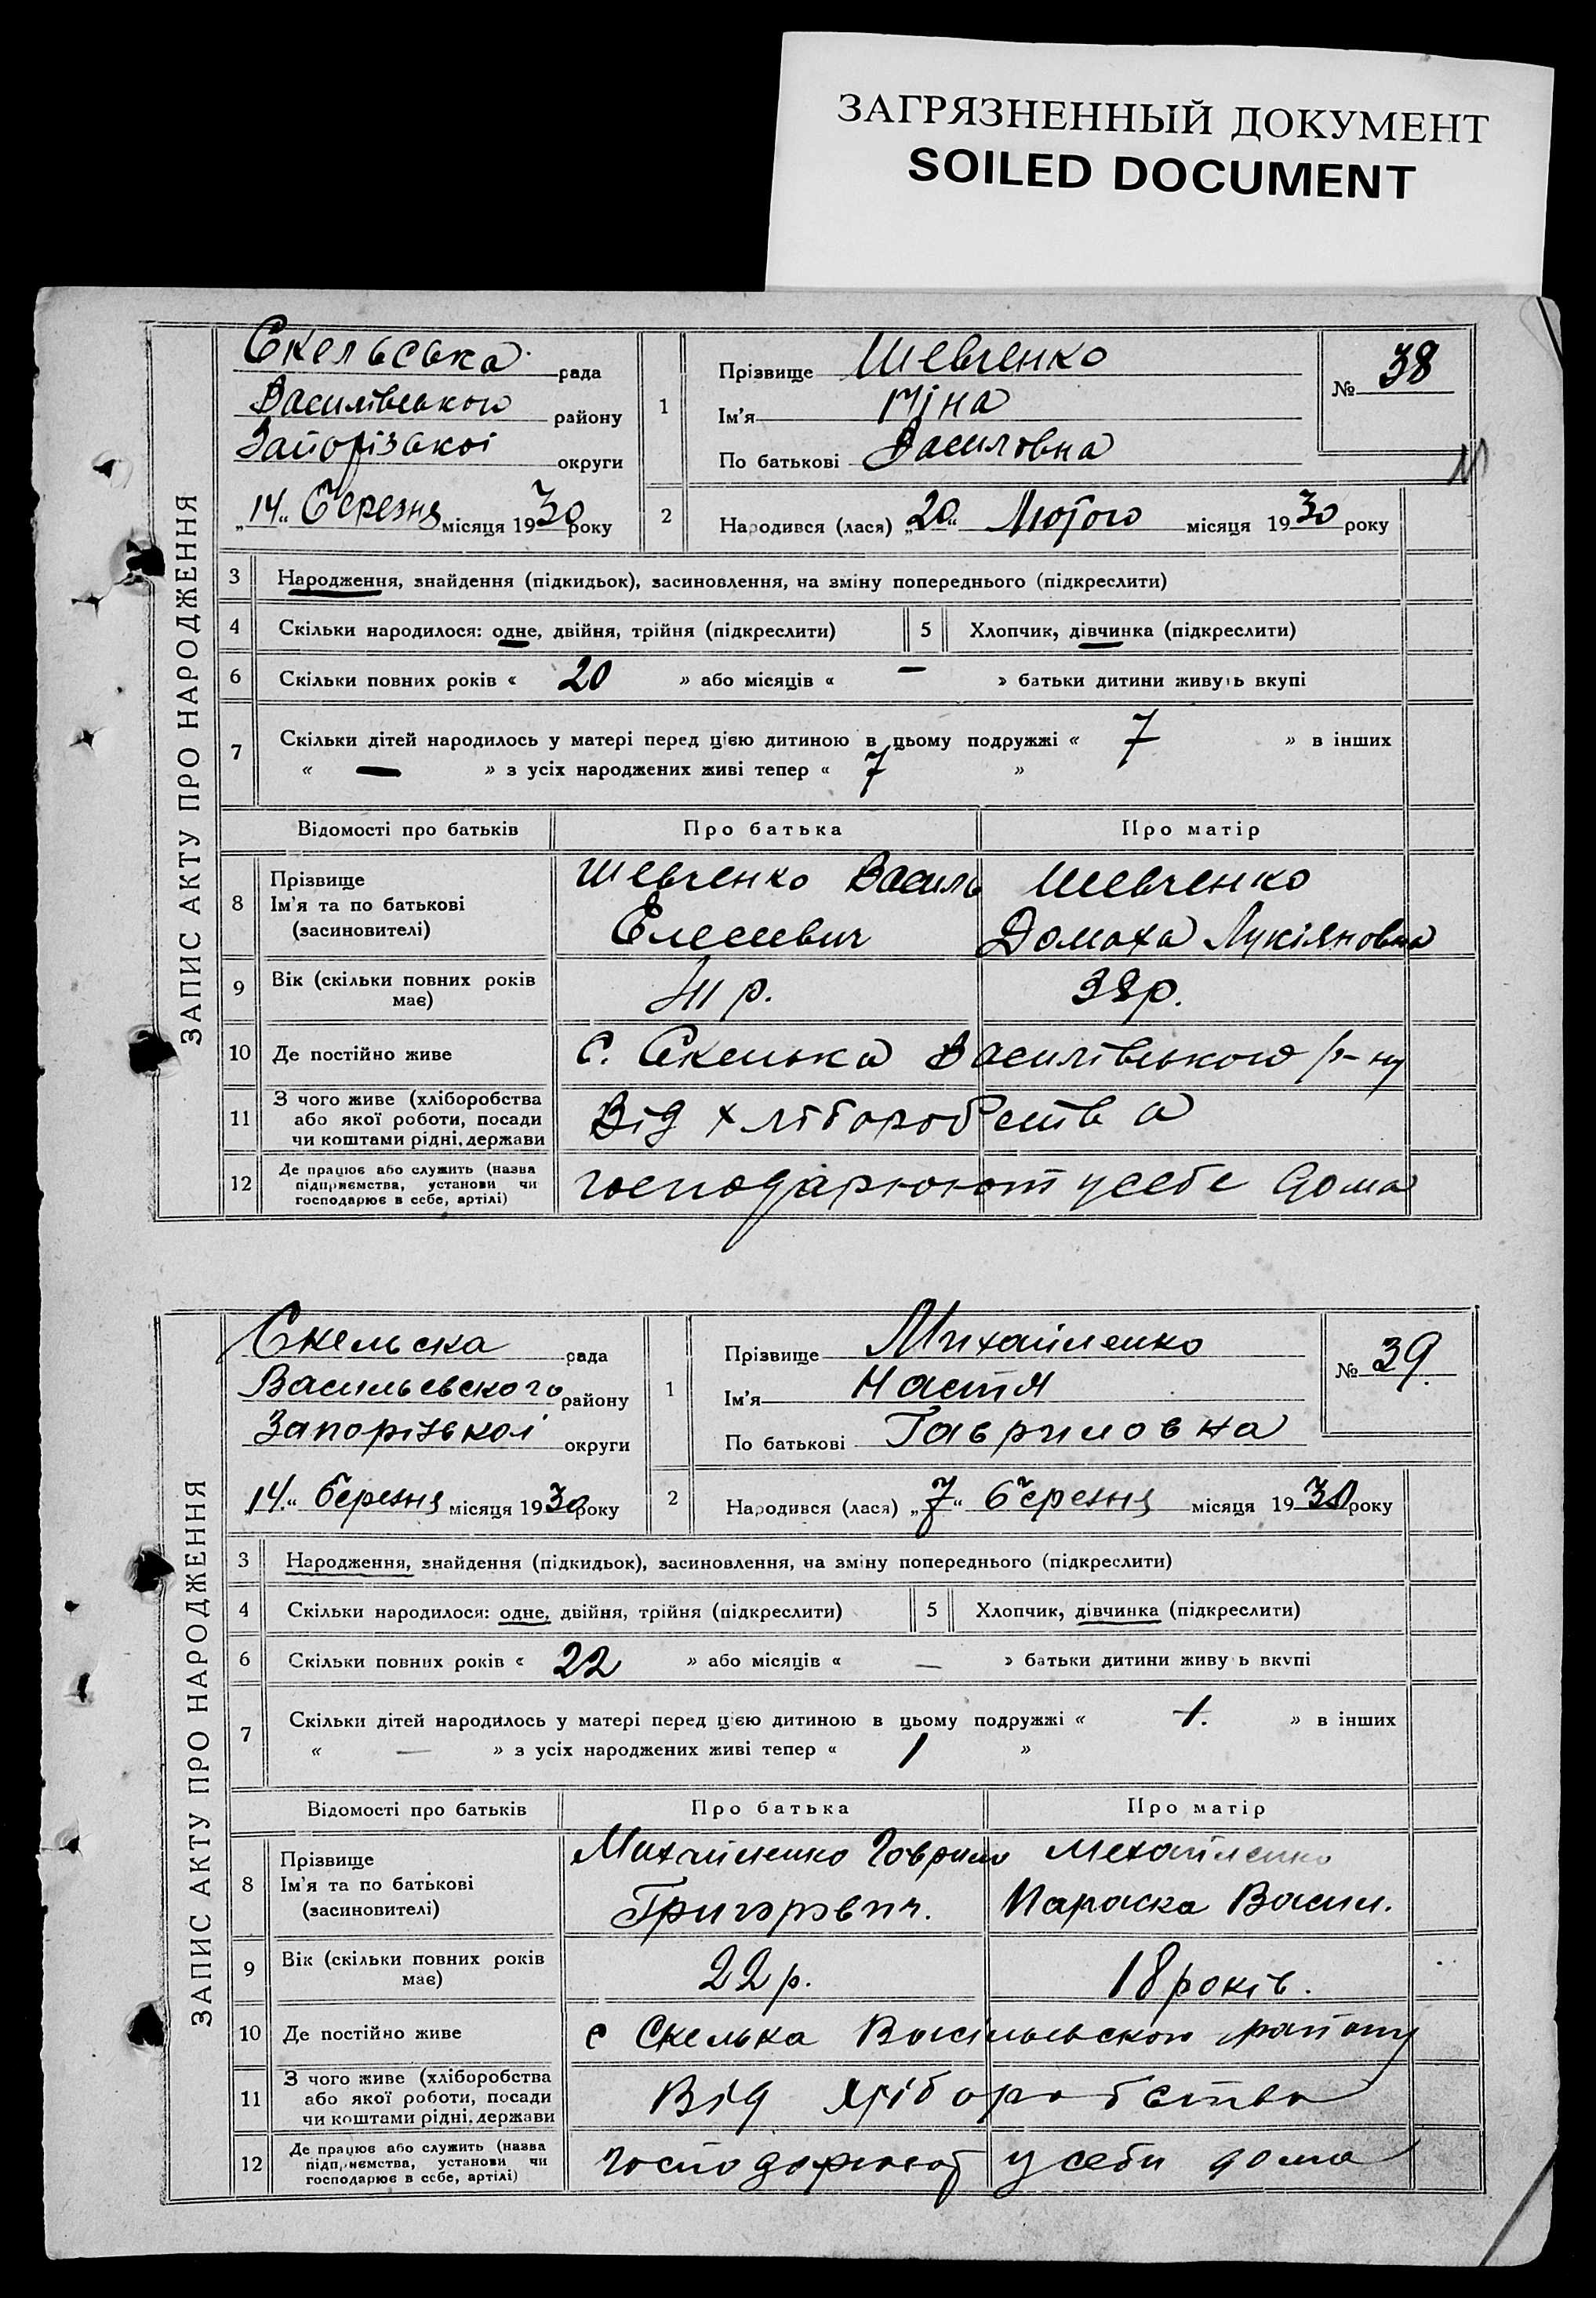 ЗАГРЯЗНЕННЫЙ ДОКУМЕНТ
SOILED DOCUMENT
ЗАПИС АКТУ ПРО НАРОДЖЕННЯ
Скельська рада
Василівського району
Запорізької округи
„14“ березня місяця 1930 року
1
Прізвище Шевченко
Ім'я Міна
По батькові Василовна
№ 38
2
Народився (лася) „20“ Лютого місяця 1930 року
3 Народження, знайдення (підкидьок), засиновлення, на зміну попереднього (підкреслити)
4 Скільки народилося: одне, двійня, трійня (підкреслити) 5 Хлопчик, дівчинка (підкреслити)
6 Скільки повних років « 20 » або місяців « — » батьки дитини живуть вкупі
7 Скільки дітей народилось у матері перед цією дитиною в цьому подружжі « 7 » в інших
« — » з усіх народжених живі тепер « 7 »
Відомості про батьків Про батька Про матір
8 Прізвище
Ім'я та по батькові
(засиновителі)
Шевченко Василь
Елесеевич
Шевченко
Домаха Лукіяновна
9 Вік (скільки повних років
має)
41 р. 38р.
10 Де постійно живе с. Скелька Василівського р-ну
11 З чого живе (хліборобства
або якої роботи, посади
чи коштами рідні, держави
Від хліборобства
12 Де працює або служить (назва
підприємства, установи чи
господарює в себе, артілі)
господарюют усебе дома
ЗАПИС АКТУ ПРО НАРОДЖЕННЯ
Скельска рада
Васильевского району
Запорізькоі округи
„14“ березня місяця 1930 року
1
Прізвище Михайленко
Ім'я Настя
По батькові Гавриловна
№ 39.
2
Народився (лася) „7“ березня місяця 1930 року
3 Народження, знайдення (підкидьок), засиновлення, на зміну попереднього (підкреслити)
4 Скільки народилося: одне, двійня, трійня (підкреслити) 5 Хлопчик, дівчинка (підкреслити)
6 Скільки повних років « 22 » або місяців « — » батьки дитини живу ь вкупі
7 Скільки дітей народилось у матері перед цією дитиною в цьому подружжі « 1. » в інших
« — » з усіх народжених живі тепер « 1 »
Відомості про батьків Про батька Про матір
8 Прізвище
Ім'я та по батькові
(засиновителі)
Михайленко Говрило
Григорович.
Мехайленко
Параска Васил.
9 Вік (скільки повних років
має)
22 р. 18 років.
10 Де постійно живе с Скелька Васільевского району
11 З чого живе (хліборобства
або якої роботи, посади
чи коштами рідні, держави
Від хліборобства
12 Де працює або служить (назва
підприємства, установи чи
господарює в себе, артілі)
господорюют у себи дома